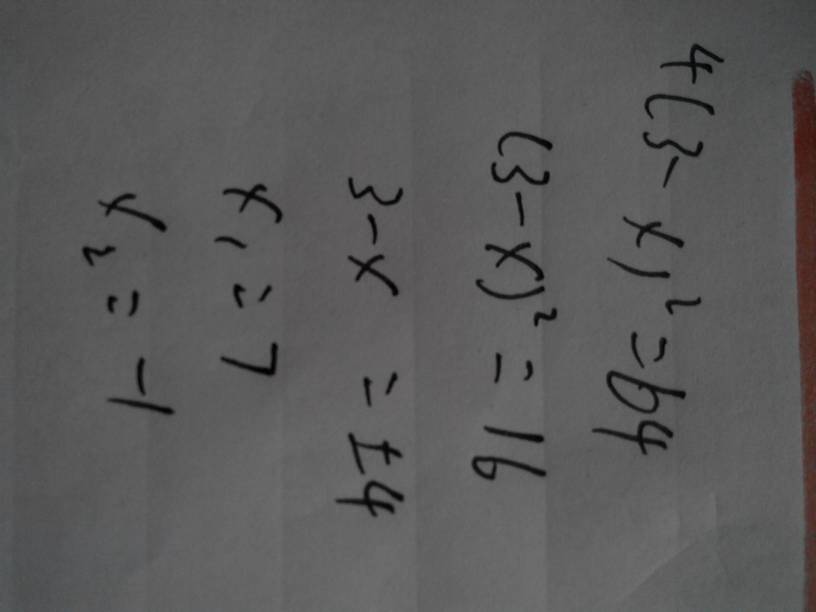 4(3-x)²=64
(3-x)²=16
3-x=±4
x₁=7
x₂=-1